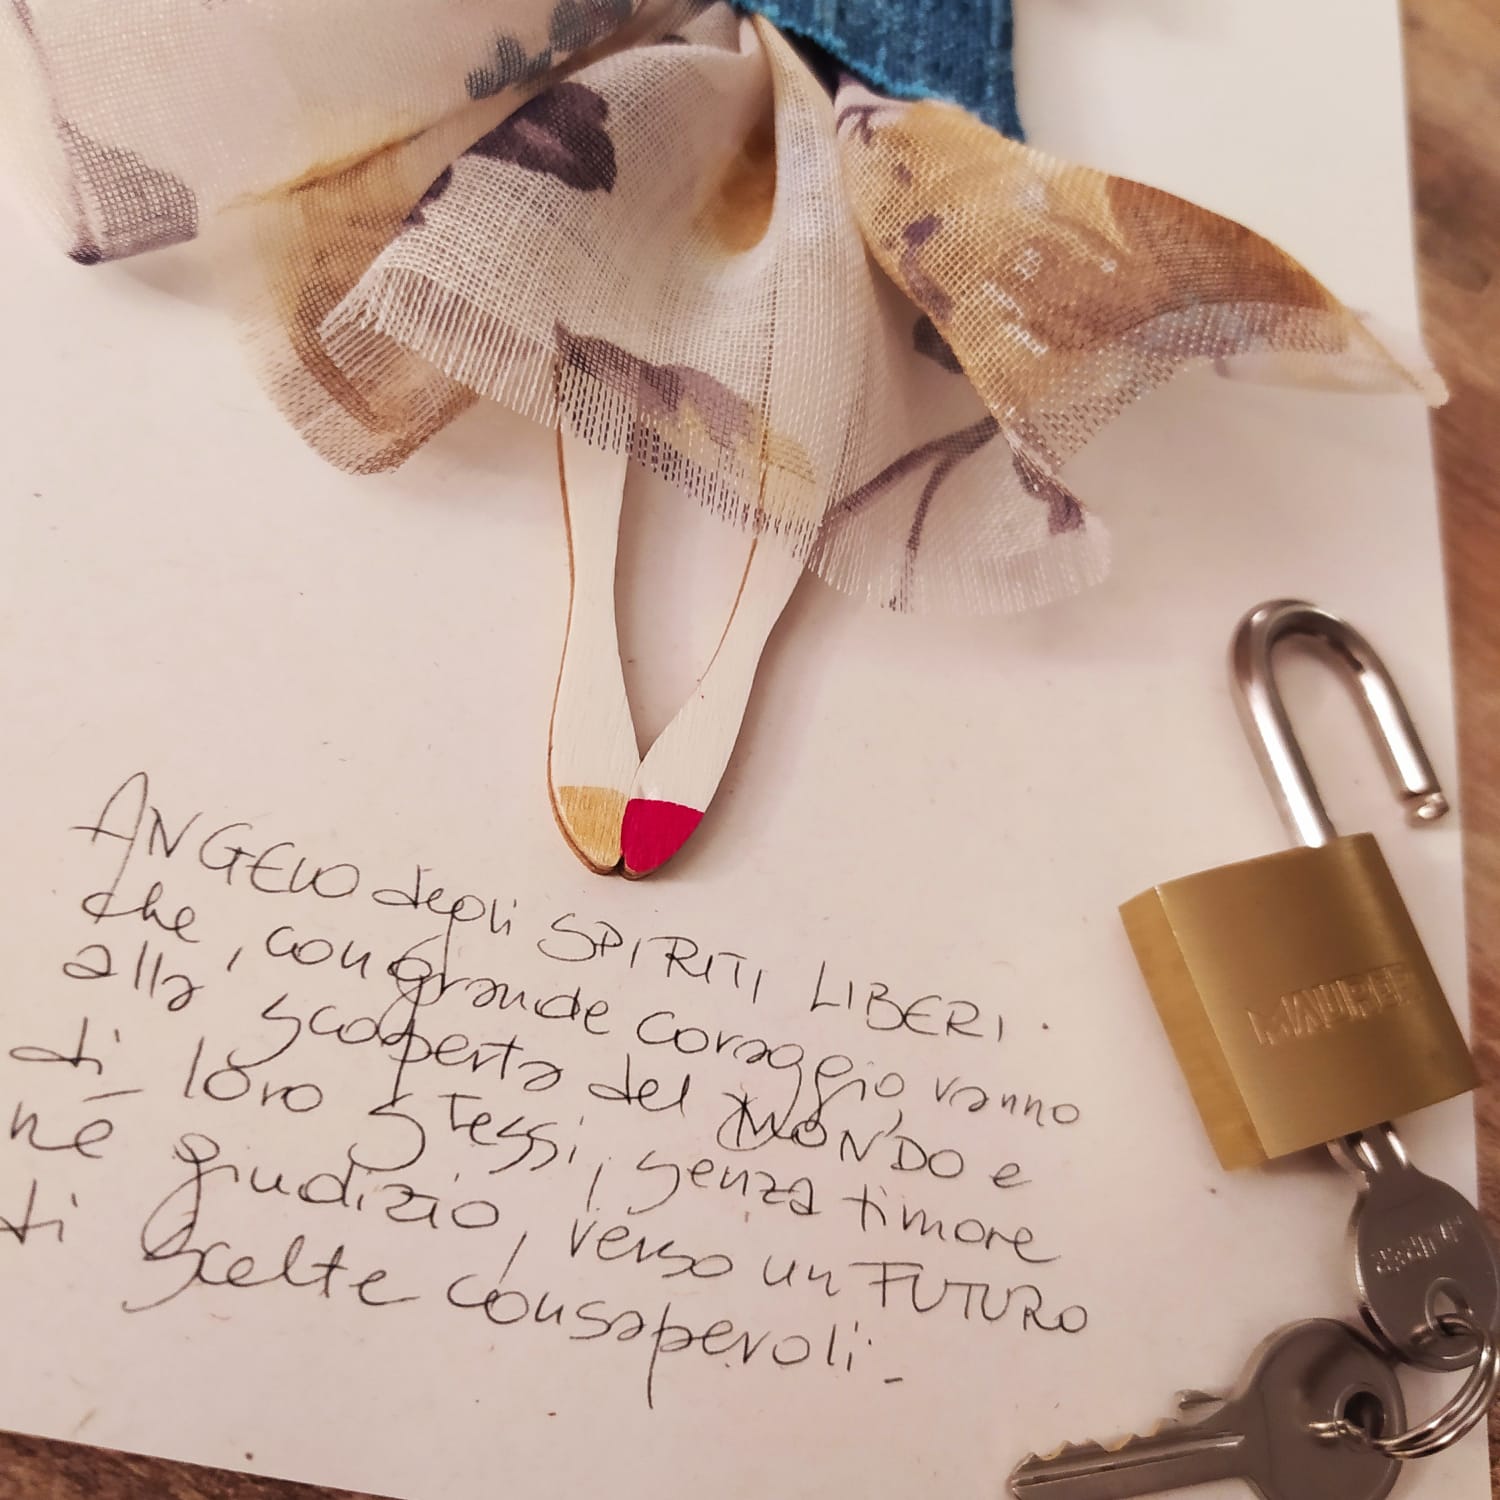 ANGELO degli SPIRITI LIBERI.
che, con grande coraggio, vanno
alla scoperta del MONDO e
di loro stessi, senza timore
nè giudizio, verso un FUTURO
di scelte consapevoli.